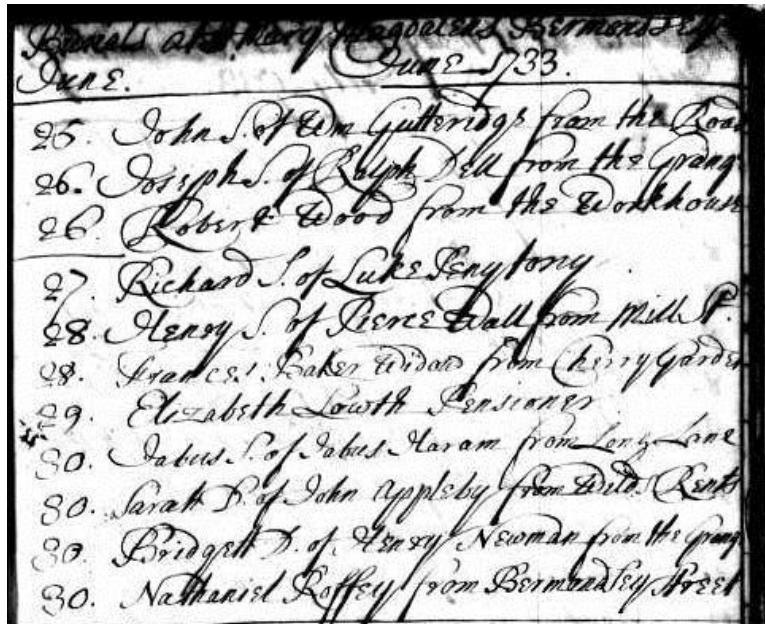 Burials at St Mary Magdalens Bermondsey
June. June 1733.
25. John S. of Wm Gutteridge from the Road
26. Joseph S. of Ralph Dell from the Grange
26. Robert Wood from the Workhouse
27. Richard S. of Luke Penytony
28. Henry S. of Pierce Wall from Mill St.
28. Frances Baker Widow from Cherry Garden
29. Elizabeth Lowth Pensioner
30. Jabus S. of Jabus Haram from Long Lane
30. Sarah D. of John Appleby from Wilds Rents
30. Bridgett D. of Henry Newman from the Grang
30. Nathaniel Roffey from Bermondsey street